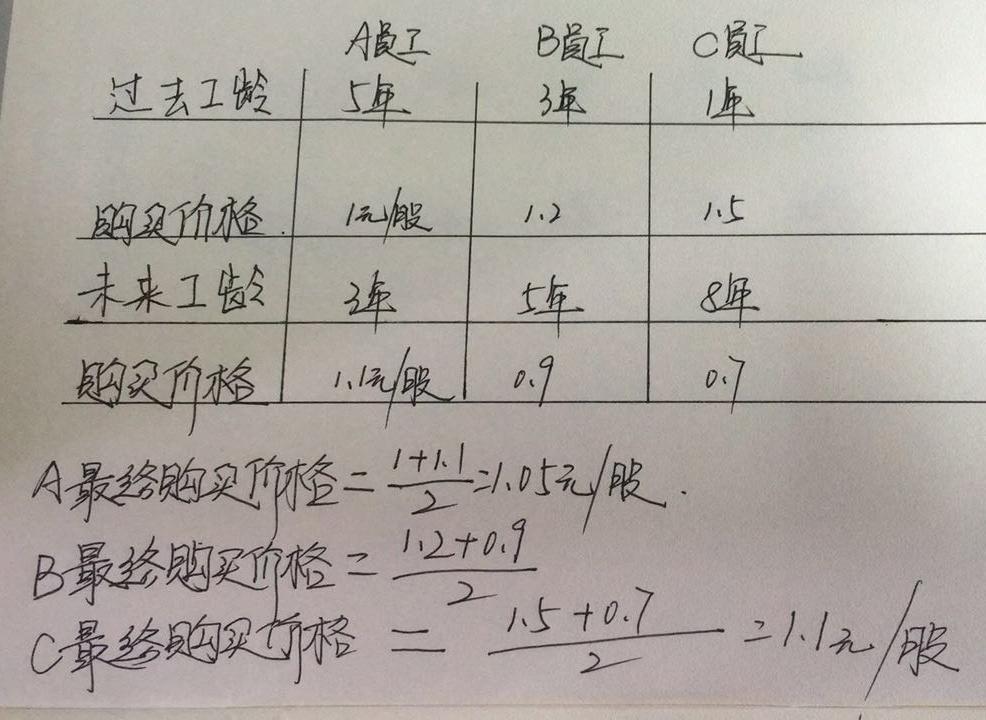 A员工 B员工 C员工
过去工龄 5年 3年 1年
购买价格. 1元/股 1.2 1.5
未来工龄 3年 5年 8年
购买价格 1.1元/股 0.9 0.7
A最终购买价格=(1+1.1)/2=1.05元/股.
B最终购买价格=(1.2+0.9)/2
C最终购买价格=(1.5+0.7)/2=1.1元/股